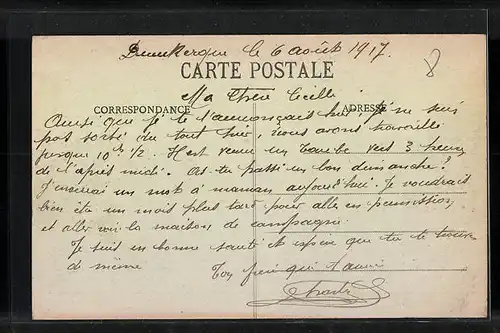 Dunkerque le 6 août 1917.
CARTE POSTALE
Ma Chère Cécile
CORRESPONDANCE ADRESSE
Ainsi que je te l'annonçais hier, je ne suis
pas sorti du tout hier, nous avons travaillé
jusque 10h 1/2. Il est venu un Taube vers 3 heures
de l'après midi. As-tu passé un bon dimanche?
J'envoie un mot à maman aujourd'hui. Je voudrais
bien être un mois plus tard pour aller en permission
et aller voir la maison de campagne.
Je suis en bonne santé et espère que tu te trouves
de même Ton frère qui t'aime
Charles
8